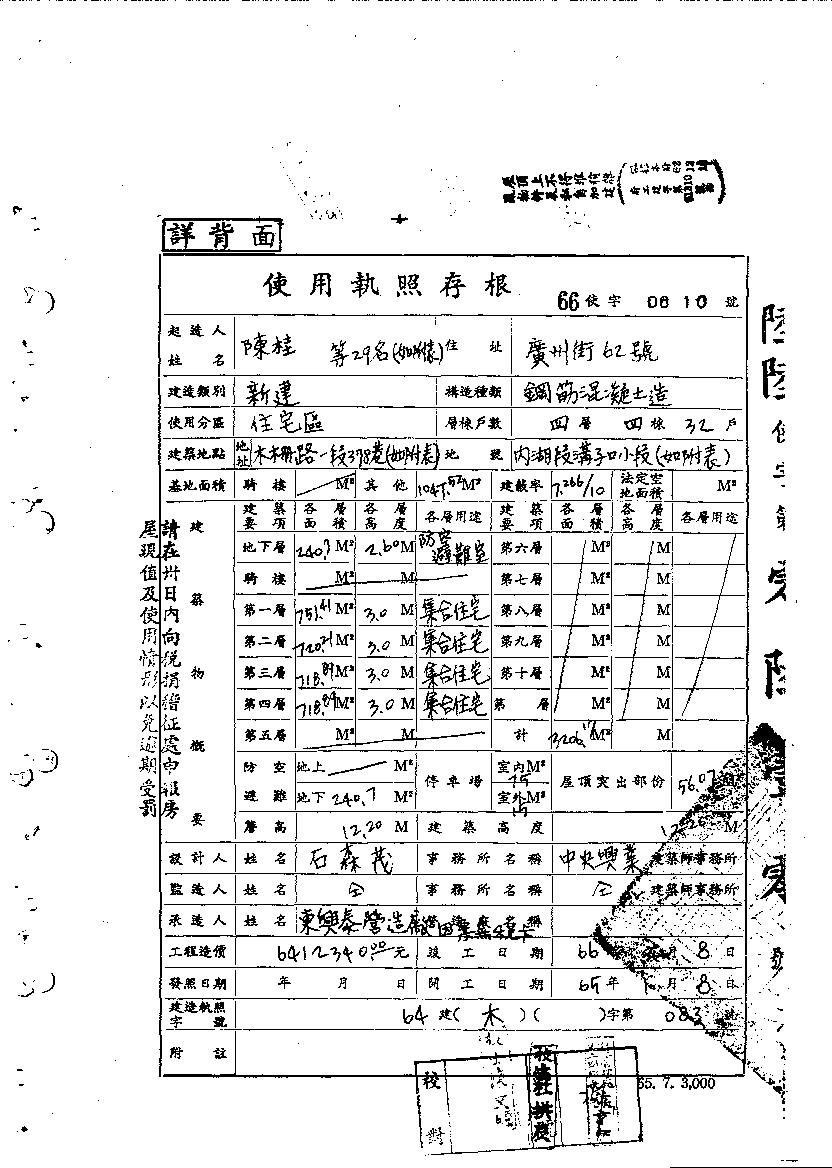 詳背面
使用執照存根
66使字 0610 號
起造人姓名 陳桂 等29名(如附表) 住址 廣州街62號
建造類別 新建 構造種類 鋼筋混凝土造
使用分區 住宅區 層棟戶數 四層 四棟 32戶
建築地點 地址 木柵路一段378巷(如附表) 地號 內湖段溝子口小段(如附表)
基地面積 騎樓 M² 其他 1047.52M² 建蔽率 7.266/10 法定空地面積 M²
建築物概要
建築要項 各層面積 各層高度 各層用途 建築要項 各層面積 各層高度 各層用途
地下層 240.7M² 2.60M 防空避難室 第六層 M² M
騎樓 M² M 第七層 M² M
第一層 751.41M² 3.0M 集合住宅 第八層 M² M
第二層 720.21M² 3.0M 集合住宅 第九層 M² M
第三層 718.89M² 3.0M 集合住宅 第十層 M² M
第四層 718.89M² 3.0M 集合住宅 第 層 M² M
第五層 M² M 計 3206.17M² M
防空避難 地上 M² 停車場 室內M² 15 屋頂突出部份 56.07
地下 240.7 M² 室外M² 15
簷高 12.20 M 建築高度 M
設計人 姓名 石森茂 事務所名稱 中央興業 建築師事務所
監造人 姓名 仝 事務所名稱 仝 建築師事務所
承造人 姓名 東興泰營造廠
工程造價 6412340.00元 竣工日期 66 8日
發照日期 年 月 日 開工日期 65年 月 8日
建造執照字號 64建(木)( )字第 083 號
附註
65. 7. 3,000
校對
請在卅日內向稅捐稽征處申報房
屋現值及使用情形以免逾期受罰
陸陸使字第零陸壹零號